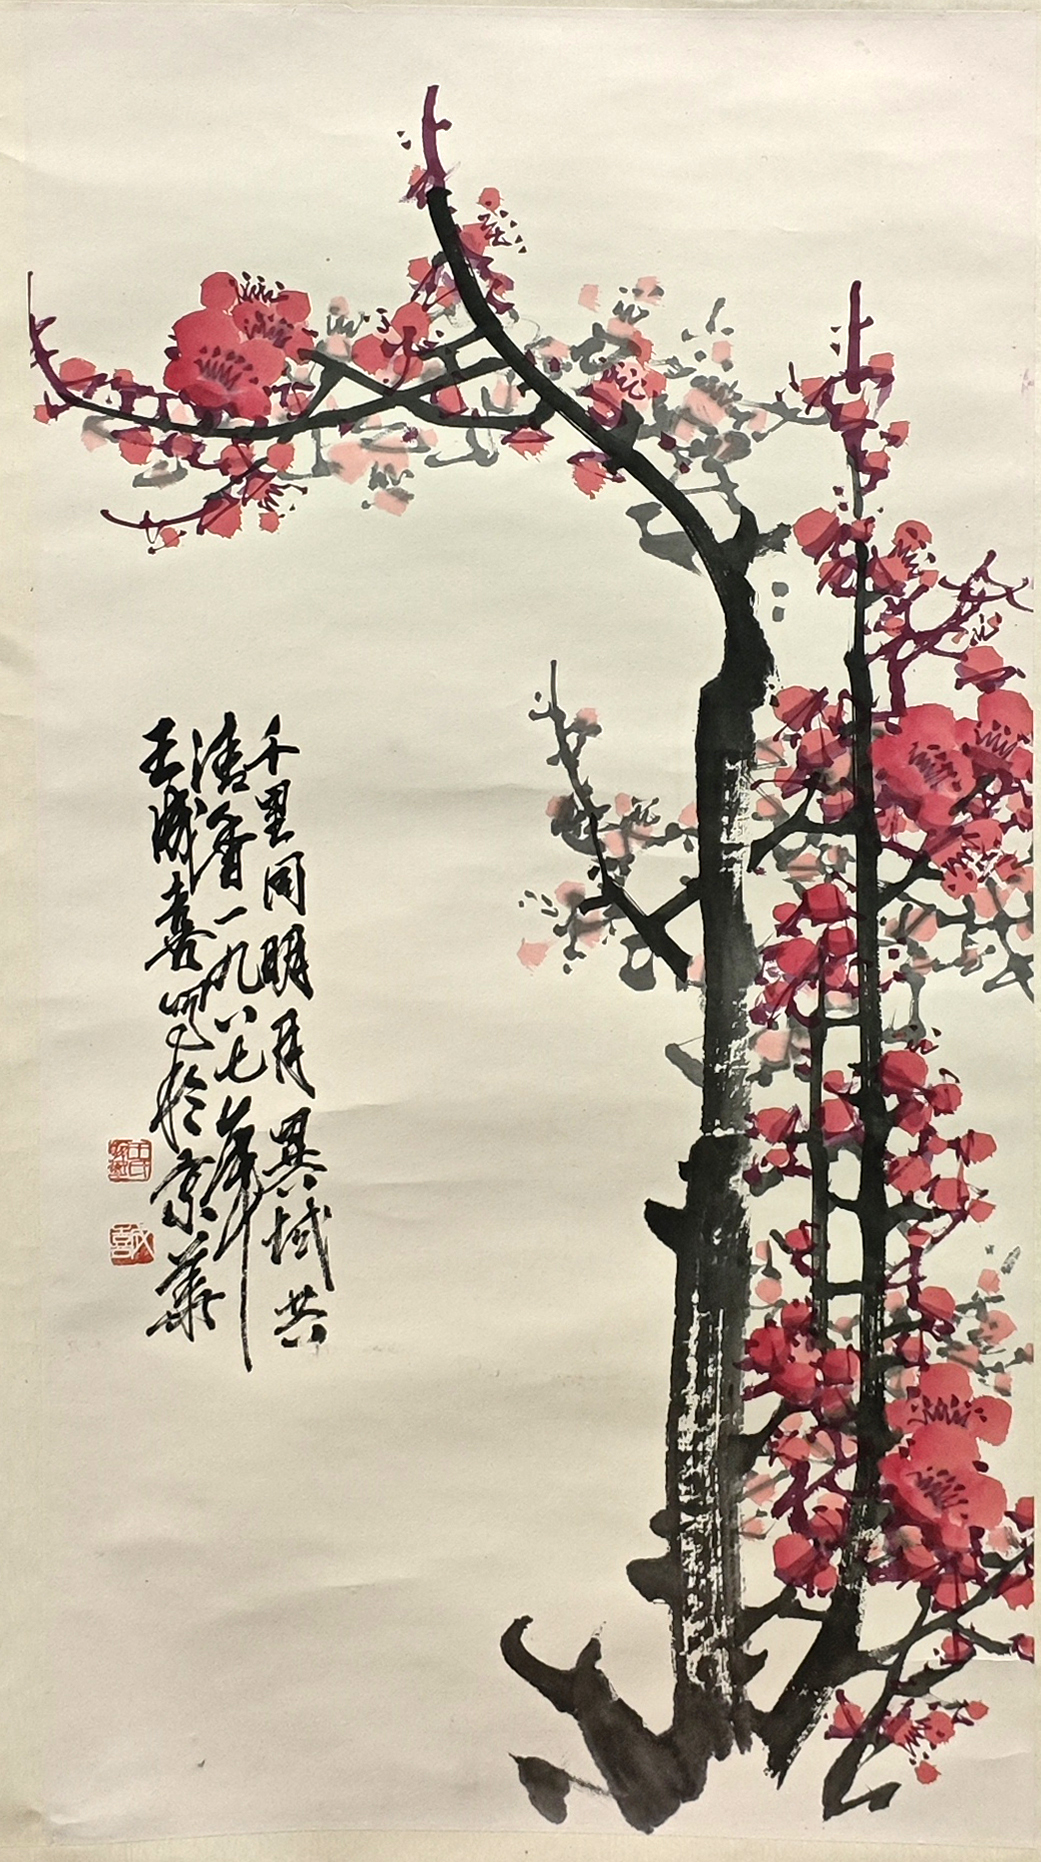 千里同明月異域共
清香一九八七年
王成喜寫於京華
王氏
成喜